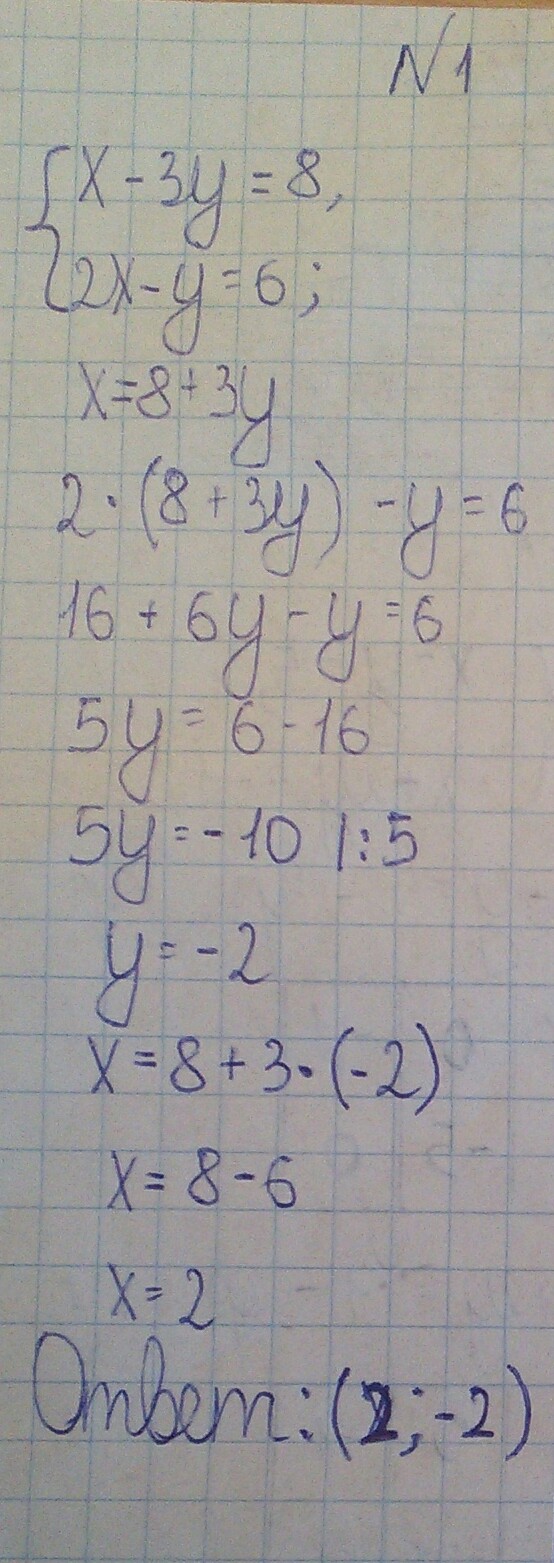 N 1
{ x - 3y = 8,
2x - y = 6;
x = 8 + 3y
2 · (8 + 3y) - y = 6
16 + 6y - y = 6
5y = 6 - 16
5y = -10 | : 5
y = -2
x = 8 + 3 · (-2)
x = 8 - 6
x = 2
Ответ: (2; -2)